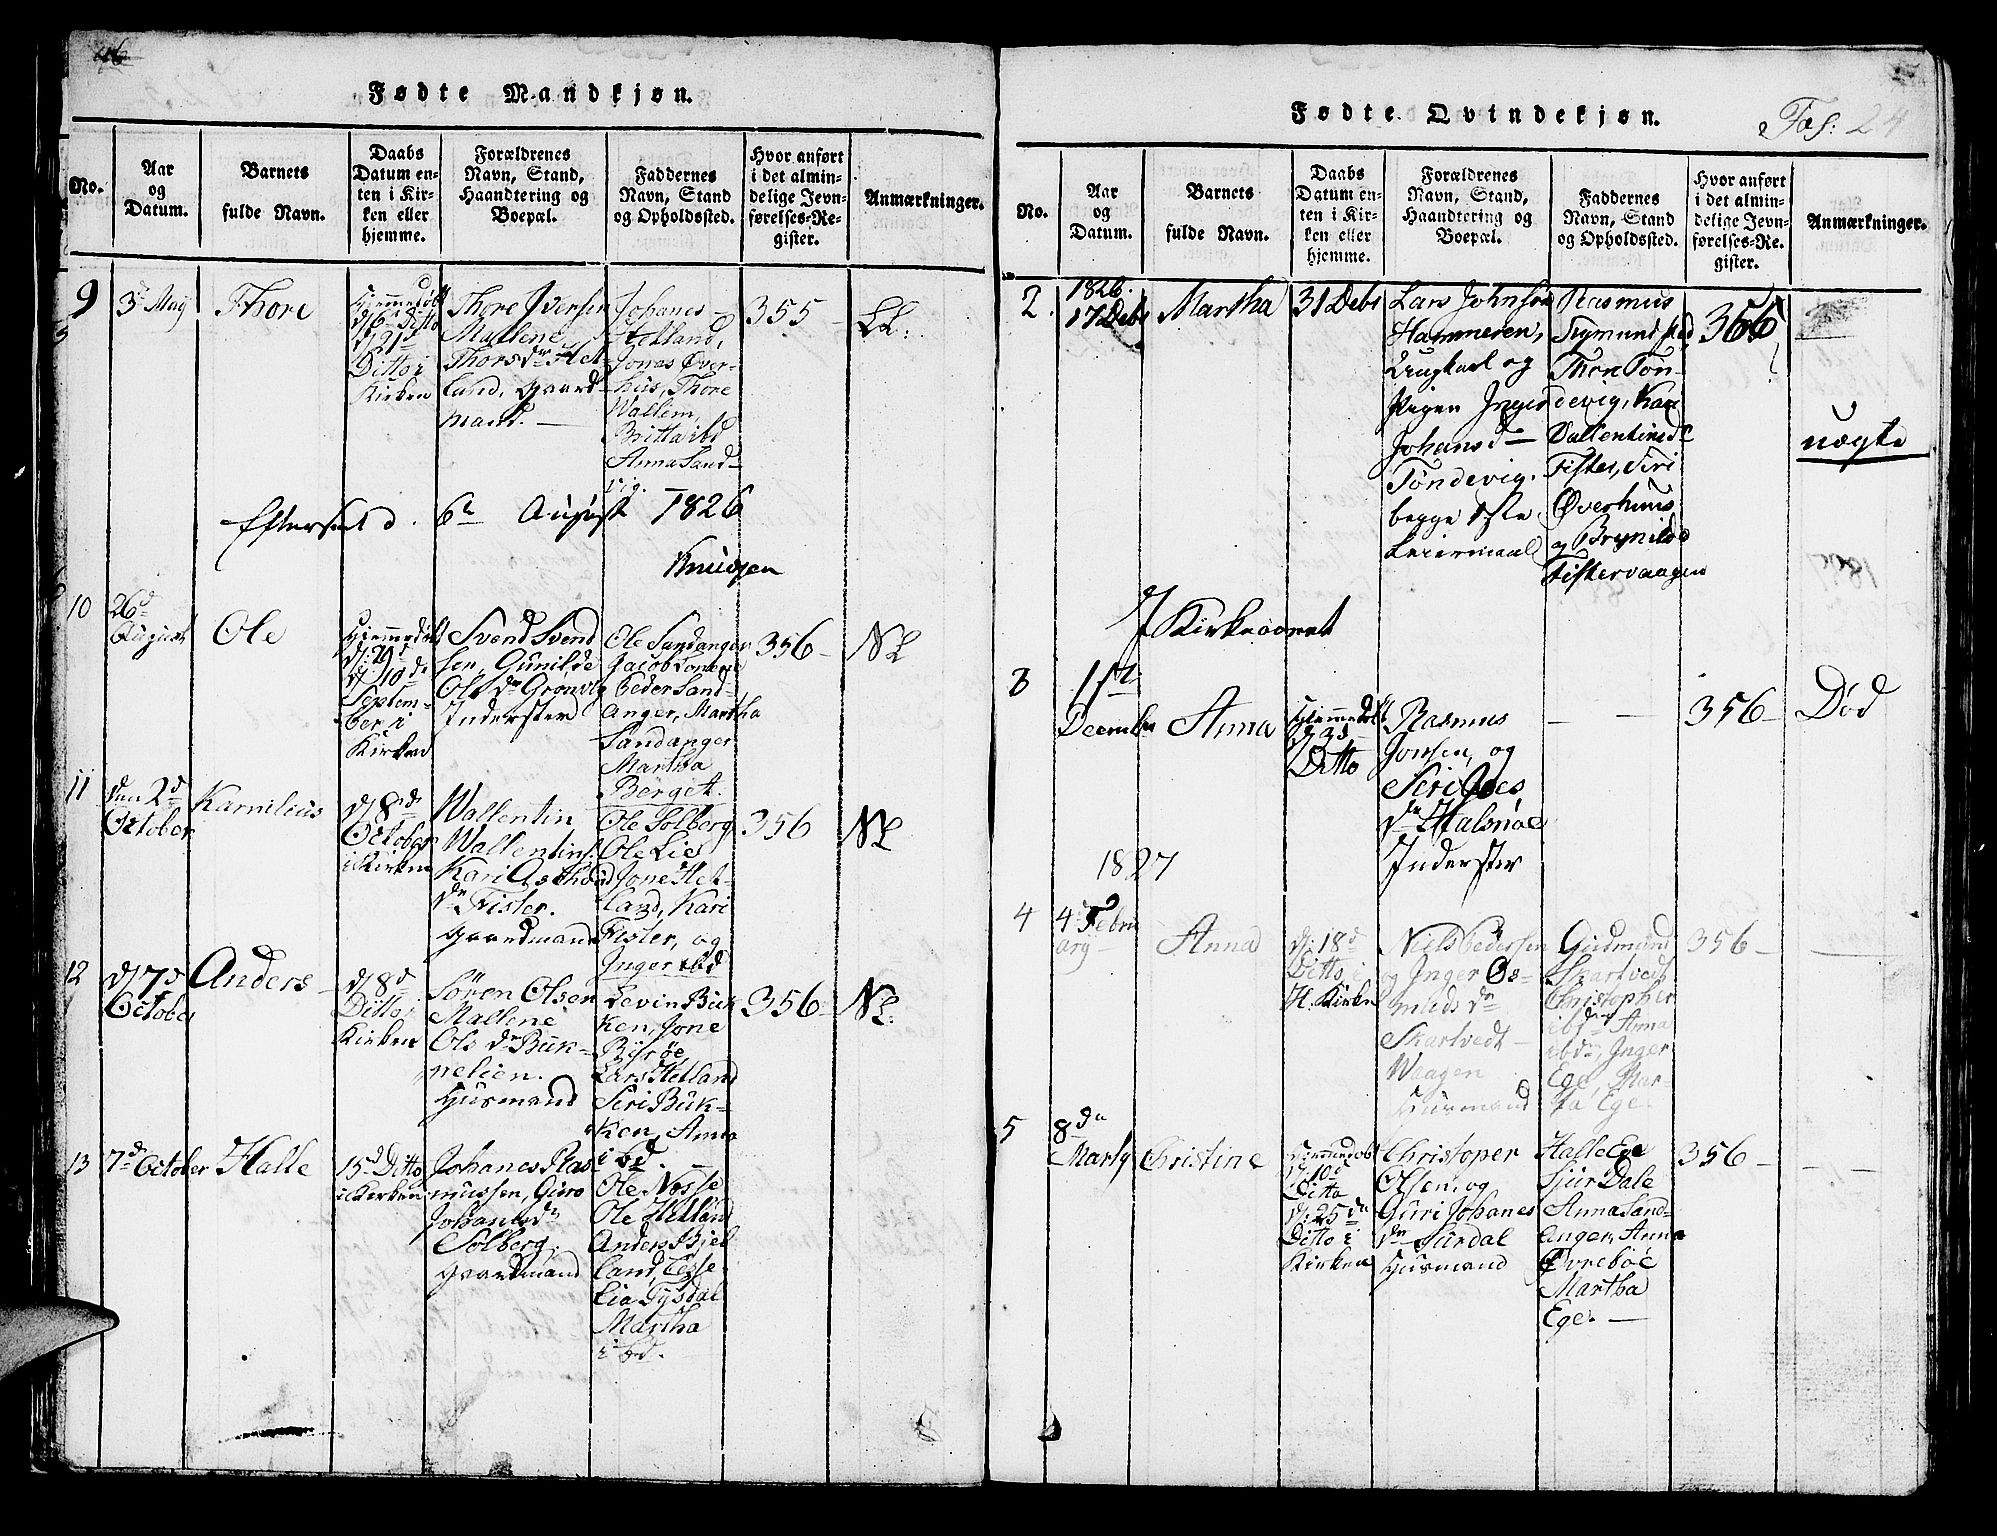 46
Fødte Mandkjøn.
No.
Aar
og
Datum.
Barnets
fulde Navn.
Daabs
Datum en-
ten i Kir-
ken eller
hjemme.
Forældrenes
Navn, Stand,
Haandtering og
Boepæl.
Faddernes
Navn, Stand
og Opholdssted.
Hvor anført
i det almin-
delige Jevn-
førelses-Re-
gister.
Anmærkninger.
9
3 Maij
Thore
Hjemmedøbt
d 6 Ditto
d 21d
Ditto i
Kirken
Thore Iversen
Mallene
Thorsdr Het-
land, Gaard-
mand. —
Johanes
Hetland,
Jones Øver-
hus, Thore
Wallem,
Britta ibd
Anna Sand-
vig.
355 —
Efterseet d. 6te August 1826
Knudsen
10
26d
August
Ole
Hjemmedøbt
d: 29d
d 10de
Septem-
ber i
Kirken
Svend Svend
sen, Gunilde
Ols dr Grønvig
Inderster
Ole Sandanger
Jacob
Peder Sand-
anger, Martha
Sandanger
Martha
Børget.
356 —
11
den 2d
October
Karnilius
d 8de
October
i Kirken
Wallentin
Wallentins:
Kari
dr Fister.
Gaardmand
Ole Solberg
Ole Lies
Jone Het-
land, Kari
Fister, og
Inger ibd
356
12
d 7d
October
Anders —
d 8d
Ditto i
Kirken
Sören Olsen
Mallene
Ols dr Buk-
nelien.
Husmand
Levin Buk
ken, Jone
Byrøe,
Lars Hetland
Seri Buk-
ken, Anna
ibd.
356 —
13
7d October
Halle
15d Ditto
i Kirken
Johanes Ras
mussen, Guro
Johans dr
Solberg,
Gaardmand
Ole Nøsse
Ole Hetland
Anders Bjel
land,
Lia Tysdal
Martha
ibd.
Fødte Qvindekjøn.
Fol: 24
No.
Aar
og
Datum.
Barnets
fulde Navn.
Daabs
Datum en-
ten i Kir-
ken eller
hjemme.
Forældrenes
Navn, Stand,
Haandtering og
Boepæl.
Faddernes
Navn, Stand
og Opholdssted.
Hvor anført
i det almin-
delige Jevn-
førelses-Re-
gister.
Anmærkninger.
2.
1826.
17 Debr
Martha
31 Debr
Lars Johnsøn
Hammeren,
Ungkarl og
Pigen Inger
Johansd —
Tøndevig.
begge 1ste
Leiermaal
Rasmus
Sigmundstad
Thon Tön-
devig, Kari
Vallentinsd
Fister, Siri
Øverhuus
og Brynild
Fistervaagen
365
uægte
I Kirkeaaret
3
1ste
December
Anna
Hjemmedøbt
d 3d
Ditto
Rasmus
Jonsen, og
Seri
dr Halsnøe
Inderster
— —
356 —
Død
1827
4
4 Febru
ary —
Anna
d: 18d
Ditto i
H. Kirken
Niels Pedersen
og Inger Os-
munds dr
Skartvedt —
Waagen
Husmand
Gudmund
Skartvedt
Christopher
ibd Anna
ibd, Inger
Ege, Mar-
ta Ege.
356 —
5
8de
Marty
Christine
Hjemmedøbt
d: 10d
Ditto
d: 25de
Ditto i
Kirken
Christoper
Olsen, og
Guri Johanes
dr Surdal
Husmand
Halle Ege
Sjur Dale
Anna Sand-
anger, Anna
Øvrebøe
Martha
Ege. —
356 —